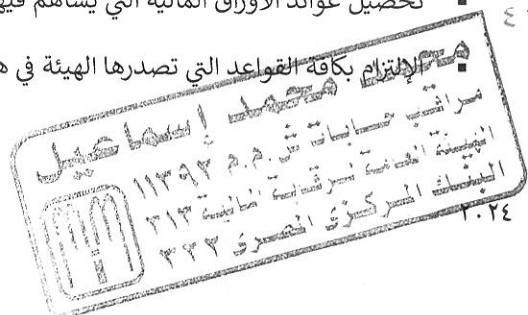 ▪ تحصيل عوائد الأوراق المالية التي يساهم فيه
٤
▪ الإلتزام بكافة القواعد التي تصدرها الهيئة في ه
محمد محمد إسماعيل
مراقب حسابات س.م.م ١١٣٩٣
الهيئة العامة للرقابة المالية ٣١٣
البنك المركزى المصرى ٣٢٢
٢٠٢٤